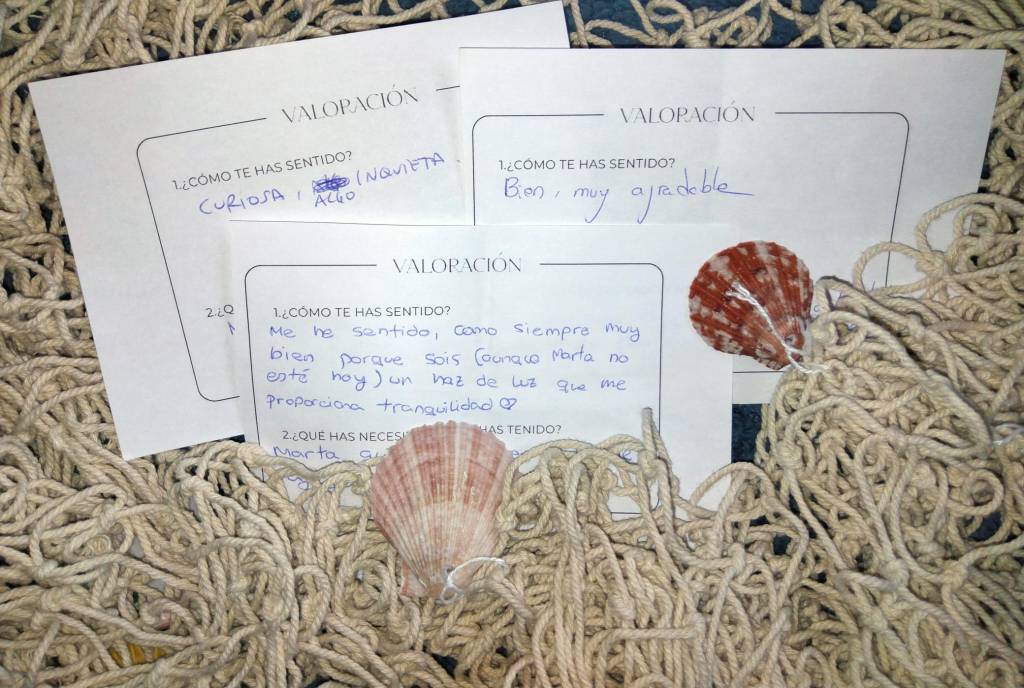 VALORACIÓN
1.¿CÓMO TE HAS SENTIDO?
CURIOSA, INQUIETA
ALGO
2.¿Q
VALORACIÓN
1.¿CÓMO TE HAS SENTIDO?
Bien, muy agradable
VALORACIÓN
1.¿CÓMO TE HAS SENTIDO?
Me he sentido, como siempre muy
bien porque sois (aunque Marta no
esté hoy) un haz de luz que me
proporciona tranquilidad
2.¿QUÉ HAS NECESI HAS TENIDO?
Marta